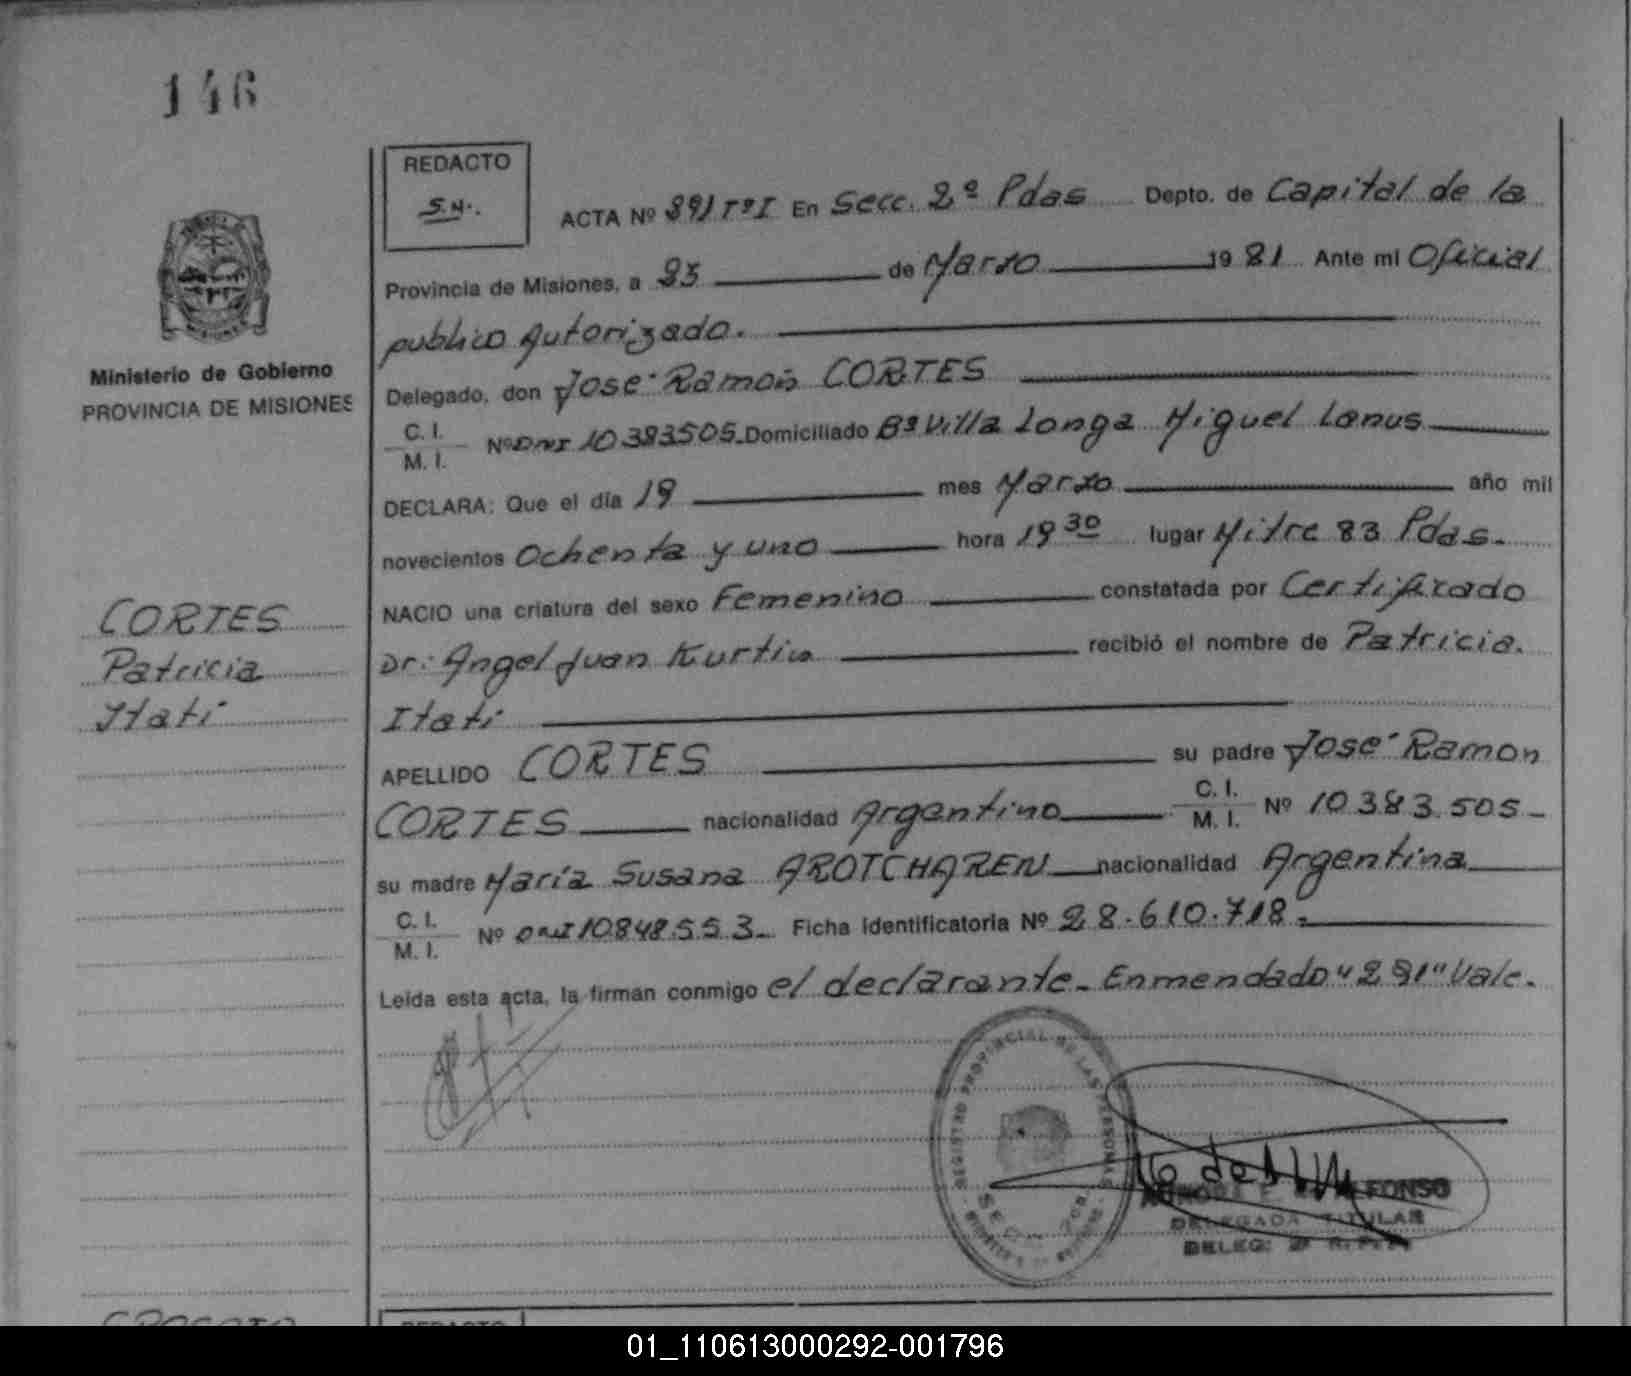 146
REDACTO
S.N.
ACTA Nº 891 TºI En Secc. 2ª Pdas Depto. de Capital de la
Provincia de Misiones, a 25 de Marzo 1981 Ante mi Oficial
publico Autorizado.
Delegado, don José Ramón CORTES
C. I.
M. I.
Nº DNI 10383505. Domiciliado Bº Villa Longa Miguel Lanus
DECLARA: Que el día 19 mes Marzo año mil
novecientos Ochenta y uno hora 19 30 lugar Mitre 83 Pdas.
NACIO una criatura del sexo Femenino constatada por Certificado
Dr: Angel Juan Kurtin recibió el nombre de Patricia
Itatí
APELLIDO CORTES su padre José Ramon
CORTES nacionalidad Argentino C. I. M. I. Nº 10.383.505-
su madre María Susana AROTCHAREN nacionalidad Argentina
C. I.
M. I.
Nº DNI 10848553- Ficha Identificatoria Nº 28.610.718.
Leída esta acta, la firman conmigo el declarante. Enmendado "291" Vale.
Ministerio de Gobierno
PROVINCIA DE MISIONES
CORTES
Patricia
Itatí
REGISTRO PROVINCIAL DE LAS PERSONAS
DELEGADA TITULAR
REDACTO
01_110613000292-001796